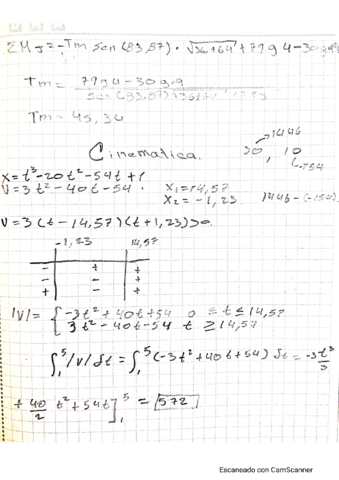 ΣM_J = -Tm sen(83,87) · √(36+64) + 779 4 - 30 g 9
Tm = 779 4 - 30 g·9
sen(83,87)
Tm = 45,34
Cinematica.
1446
30, 10
-754
x = t³ - 20t² - 54t + 1
v = 3t² - 40t - 54 · x₁ = 14,57
x₂ = -1,23 1446 - (-154)
v = 3(t - 14,57)(t + 1,23) > 0
-1,23 14,57
- + +
- - +
+ - +
|v| = { -3t² + 40t + 54 0 ≤ t ≤ 14,57
3t² - 40t - 54 t ≥ 14,57
∫₁⁵ |v| dt = ∫₁⁵ (-3t² + 40t + 54) dt = -3t³/3
+ 40/2 t² + 54t ]₁⁵ = 572
Escaneado con CamScanner